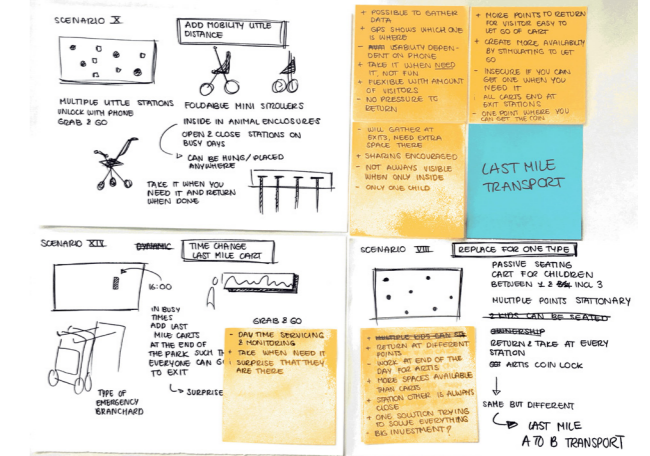 SCENARIO X
ADD MOBILITY LITTLE
DISTANCE
MULTIPLE LITTLE STATIONS
UNLOCK WITH PHONE
GRAB & GO
FOLDABLE MINI STROLLERS
INSIDE IN ANIMAL ENCLOSURES
OPEN & CLOSE STATIONS ON
BUSY DAYS
CAN BE HUNG/PLACED
ANYWHERE
TAKE IT WHEN YOU
NEED IT AND RETURN
WHEN DONE
+ POSSIBLE TO GATHER
DATA
+ GPS SHOWS WHICH ONE
IS WHERE
- USABILITY DEPEN-
DENT ON PHONE
+ TAKE IT WHEN NEED
IT, NOT FUN
+ FLEXIBLE WITH AMOUNT
OF VISITORS
- NO PRESSURE TO
RETURN
+ MORE POINTS TO RETURN
FOR VISITOR EASY TO
LET GO OF CART
+ CREATE MORE AVAILABILITY
BY STIMULATING TO LET
GO
- INSECURE IF YOU CAN
GET ONE WHEN YOU
NEED IT
- ALL CARTS END AT
EXIT STATIONS
- ONE POINT WHERE YOU
CAN GET THE COIN
- WILL GATHER AT
EXITS, NEED EXTRA
SPACE THERE
+ SHARING ENCOURAGED
- NOT ALWAYS VISIBLE
WHEN ONLY INSIDE
- ONLY ONE CHILD
LAST MILE
TRANSPORT
SCENARIO XIV
DYNAMIC
TIME CHANGE
LAST MILE CART
16:00
IN BUSY
TIMES
ADD LAST
MILE CARTS
AT THE END OF
THE PARK SUCH TH
EVERYONE CAN G
TO EXIT
SURPRISE
TYPE OF
EMERGENCY
BRANCHARD
GRAB & GO
- DAY TIME SERVICING
& MONITORING
+ TAKE WHEN NEED IT
SURPRISE THAT THEY
ARE THERE
SCENARIO VIII
REPLACE FOR ONE TYPE
PASSIVE SEATING
CART FOR CHILDREN
BETWEEN 1 2 INCL 3
MULTIPLE POINTS STATIONARY
2 KIDS CAN BE SEATED
OWNERSHIP
RETURN & TAKE AT EVERY
STATION
ARTIS COIN LOCK
SAME BUT DIFFERENT
LAST MILE
A TO B TRANSPORT
MULTIPLE KIDS CAN
+ RETURN AT DIFFERENT
POINTS
- WORK AT END OF THE
DAY FOR ARTIS
+ MORE SPACES AVAILABLE
THAN CARTS
+ STATION OTHER IS ALWAYS
CLOSE
+ ONE SOLUTION TRYING
TO SOLVE EVERYTHING
- BIG INVESTMENT?